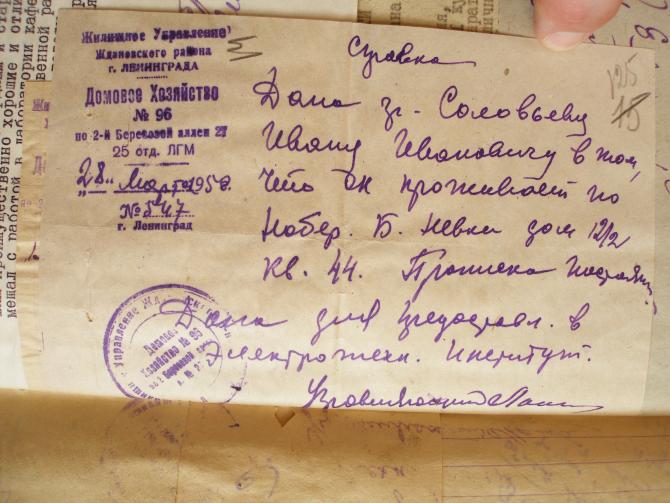 Жилищное Управление
Ждановского района
г. ЛЕНИНГРАДА
Домовое Хозяйство
№ 96
по 2-й Березовой аллее 27
25 отд. ЛГМ
"28" Март 195
№ 547
г. Ленинград
Справка
125
15
Дана гр. Соловьеву
Ивану Ивановичу в том,
что он проживает по
Набер. Б. Невки дом 12/2
кв. 44. Прописка постоян.
Дана для предоставл. в
Электротехн. Институт.
Управляющий
Управление
Домовое
Хозяйство № 96
мещал с работой в лаборатории
хорошие и